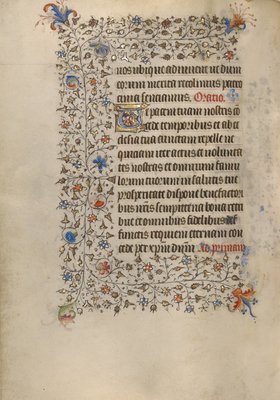 nos ubique adiuuent ut dum
eorum merita recolimus patro
cinia sentiamus. Oratio.
Et pacem tuam nostris co
cede temporibus et ab ec
clesia tua cunctam repelle ne
quiciam iter actus et volunta
tes nostras et omnium famu
lorum tuorum in salutis tue
prosperitate dispone benefactor
ibus nris sempiterna bona retri
bue et omnibus fidelibus def
functis requiem eternam con
cede per xpm dnm Ad primam